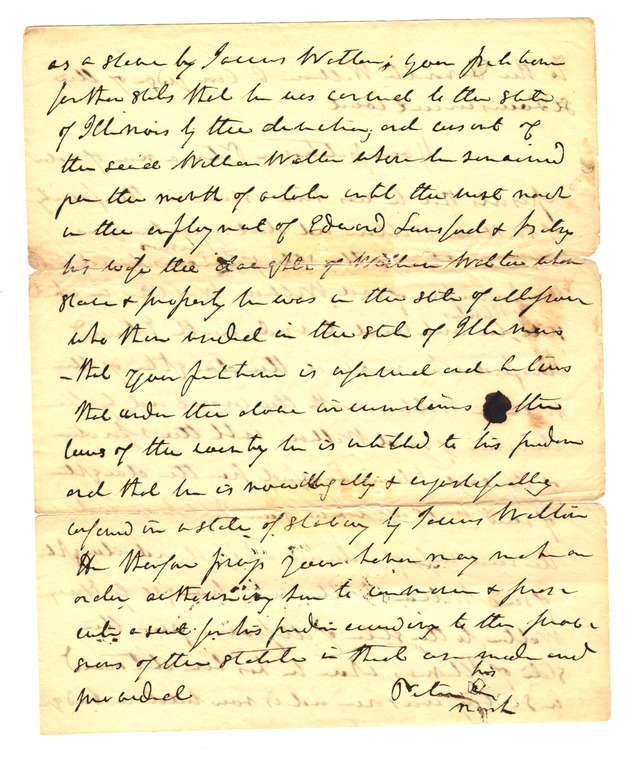 as a slave by James Walton; your petitioner
further states that he was carried to the state
of Illinois by the direction, and consent of
the said William Walton where he remained
from the month of october until the next march
in the employment of Edward Lunsford & Betsy
his wife the daughter of William Walton whose
slave & property he was in the state of Missouri
who then resided in the state of Illinois
- that your petitioner is informed and believes
that under the above circumstances the
laws of the country he is entitled to his freedom
and that he is now illegally & unjustifiably
confined in a state of slavery by James Walton
He therefore prays your honor may make an
order authorising him to commence & prose
cute a suit for his freedom according to the provi
sions of the statute in that case made and
provided
his
Peter
mark